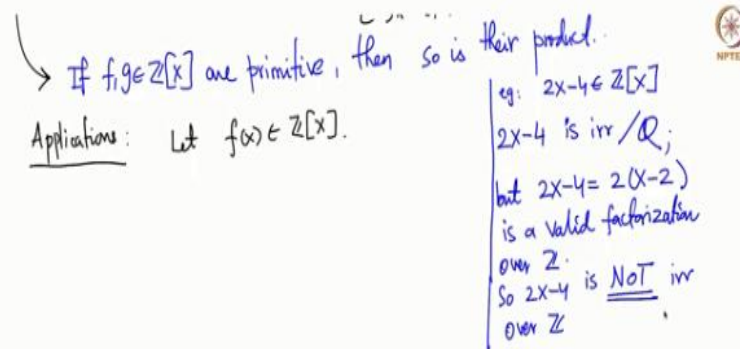 If f,g∈ℤ[x] are primitive, then so is their product.
Applications: Let f(x) ∈ ℤ[x].
eg: 2x-4 ∈ ℤ[x]
2x-4 is irr /ℚ;
but 2x-4 = 2(x-2)
is a valid factorization
over ℤ.
So 2x-4 is NOT irr
over ℤ
NPTEL